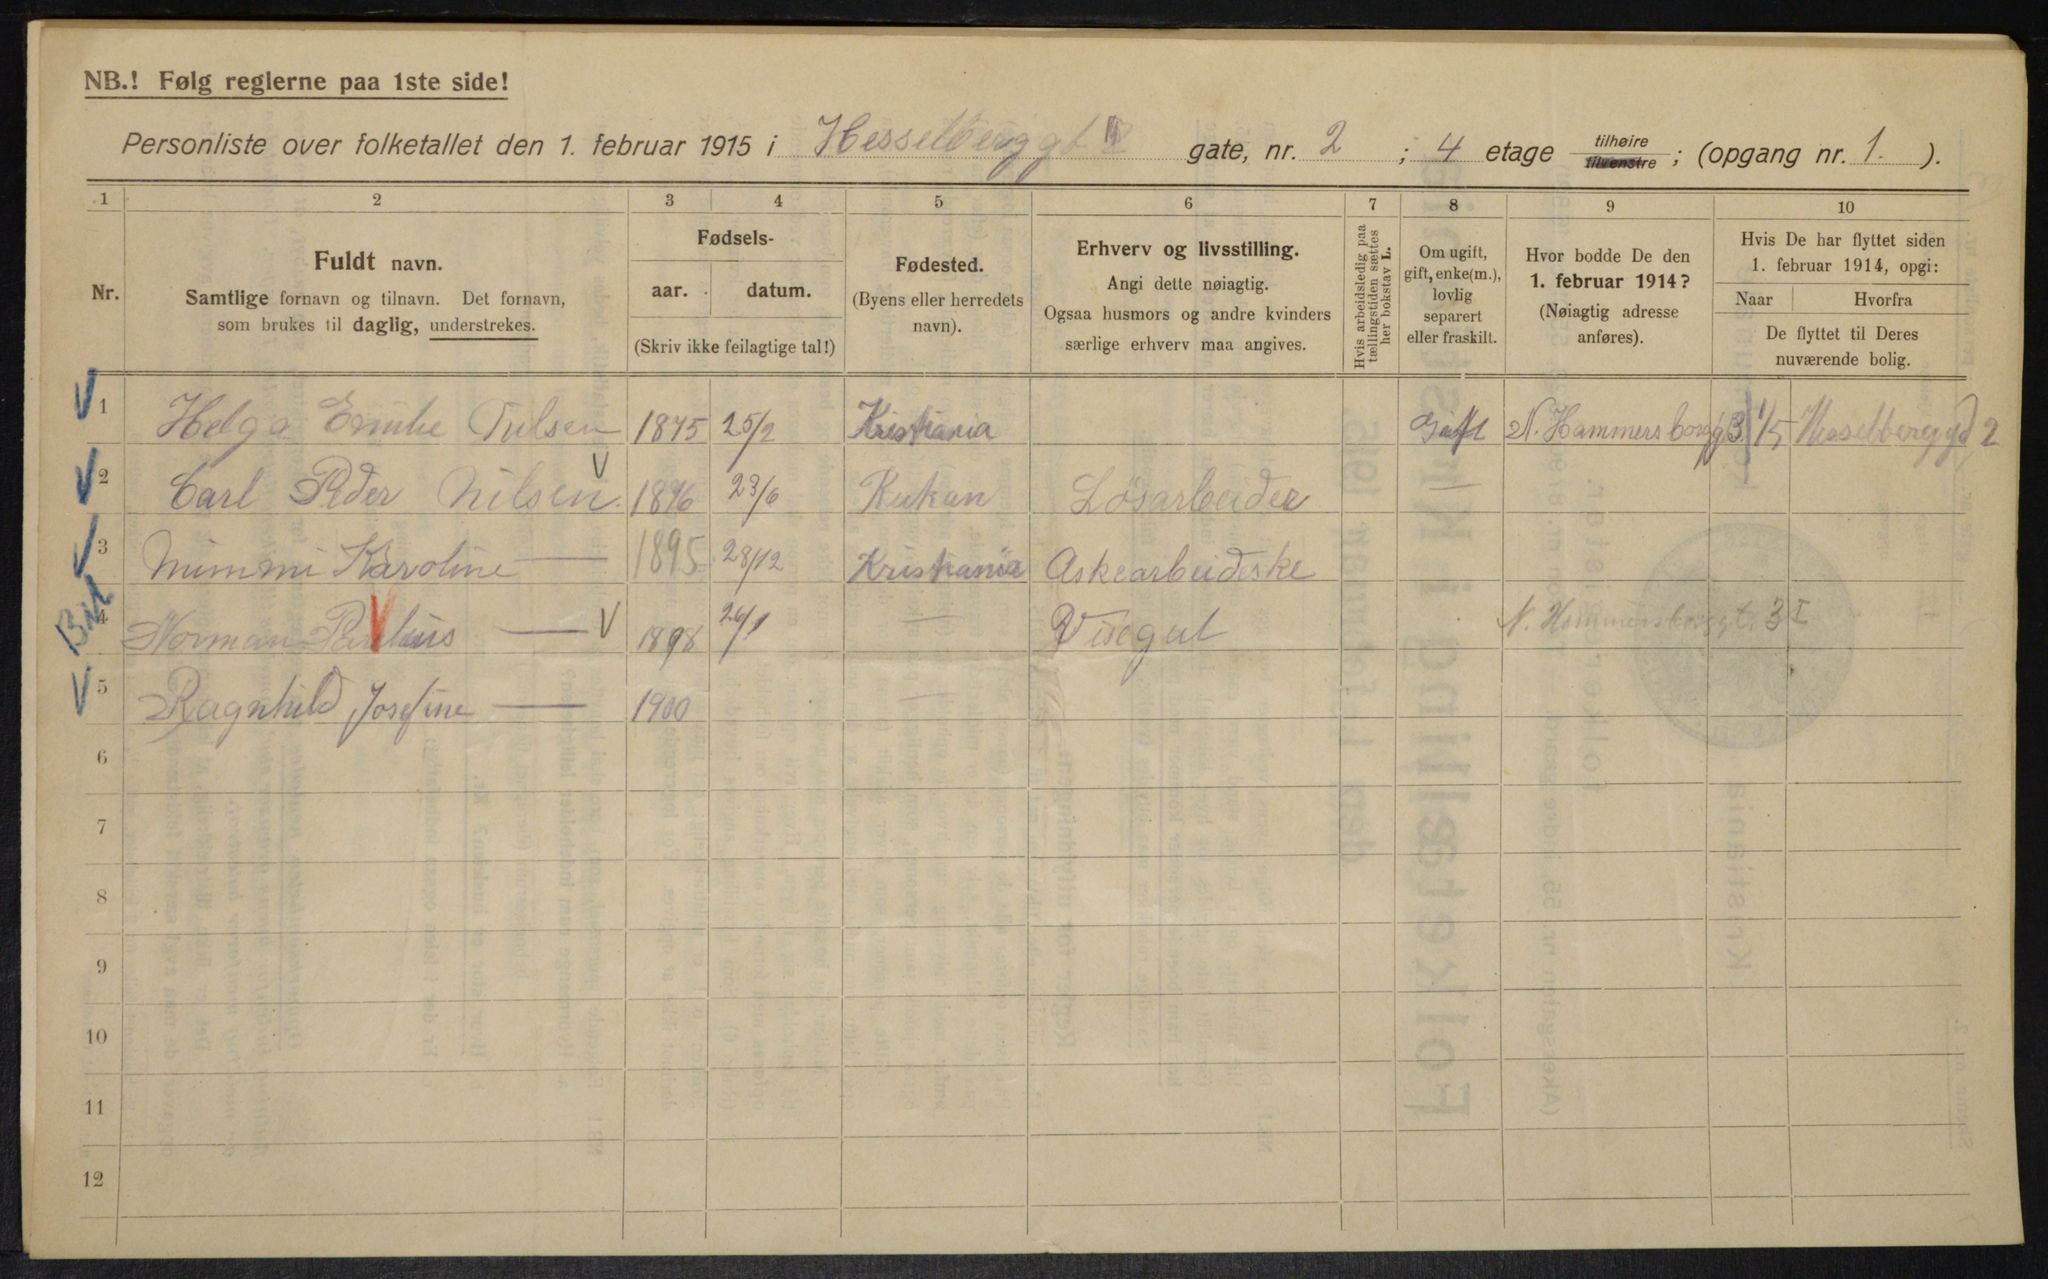 NB.! Følg reglerne paa 1ste side!
Personliste over folketallet den 1. februar 1915 i Hesselberggt gate, nr. 2 ; 4 etage tilhøire tilvenstre ; (opgang nr. 1. ).
1 2 3 4 5 6 7 8 9 10
Nr.
Fuldt navn.
Samtlige fornavn og tilnavn. Det fornavn,
som brukes til daglig, understrekes.
Fødsels-
aar. datum.
(Skriv ikke feilagtige tal!)
Fødested.
(Byens eller herredets
navn).
Erhverv og livsstilling.
Angi dette nøiagtig.
Ogsaa husmors og andre kvinders
særlige erhverv maa angives.
Hvis arbeidsledig paa
tællingstiden sættes
her bokstav L.
Om ugift,
gift, enke(m.),
lovlig
separert
eller fraskilt.
Hvor bodde De den
1. februar 1914?
(Nøiagtig adresse
anføres).
Hvis De har flyttet siden
1. februar 1914, opgi:
Naar Hvorfra
De flyttet til Deres
nuværende bolig.
1 Helga Emilie Nilsen 1875 25/2 Kristiania Gift N. Hammersborgg 3 1/5 Hesselberggt 2
2 Carl Peder Nilsen 1896 23/6 Rukan Løsarbeider
3 Mimmi Karoline — 1895 28/12 Kristiania Askearbeideske
4 Norman — 1898 26/1 — Visegut N. Hammersborggt. 3 I
5 Ragnhild Josefine — 1900 —
6
7
8
9
10
11
12